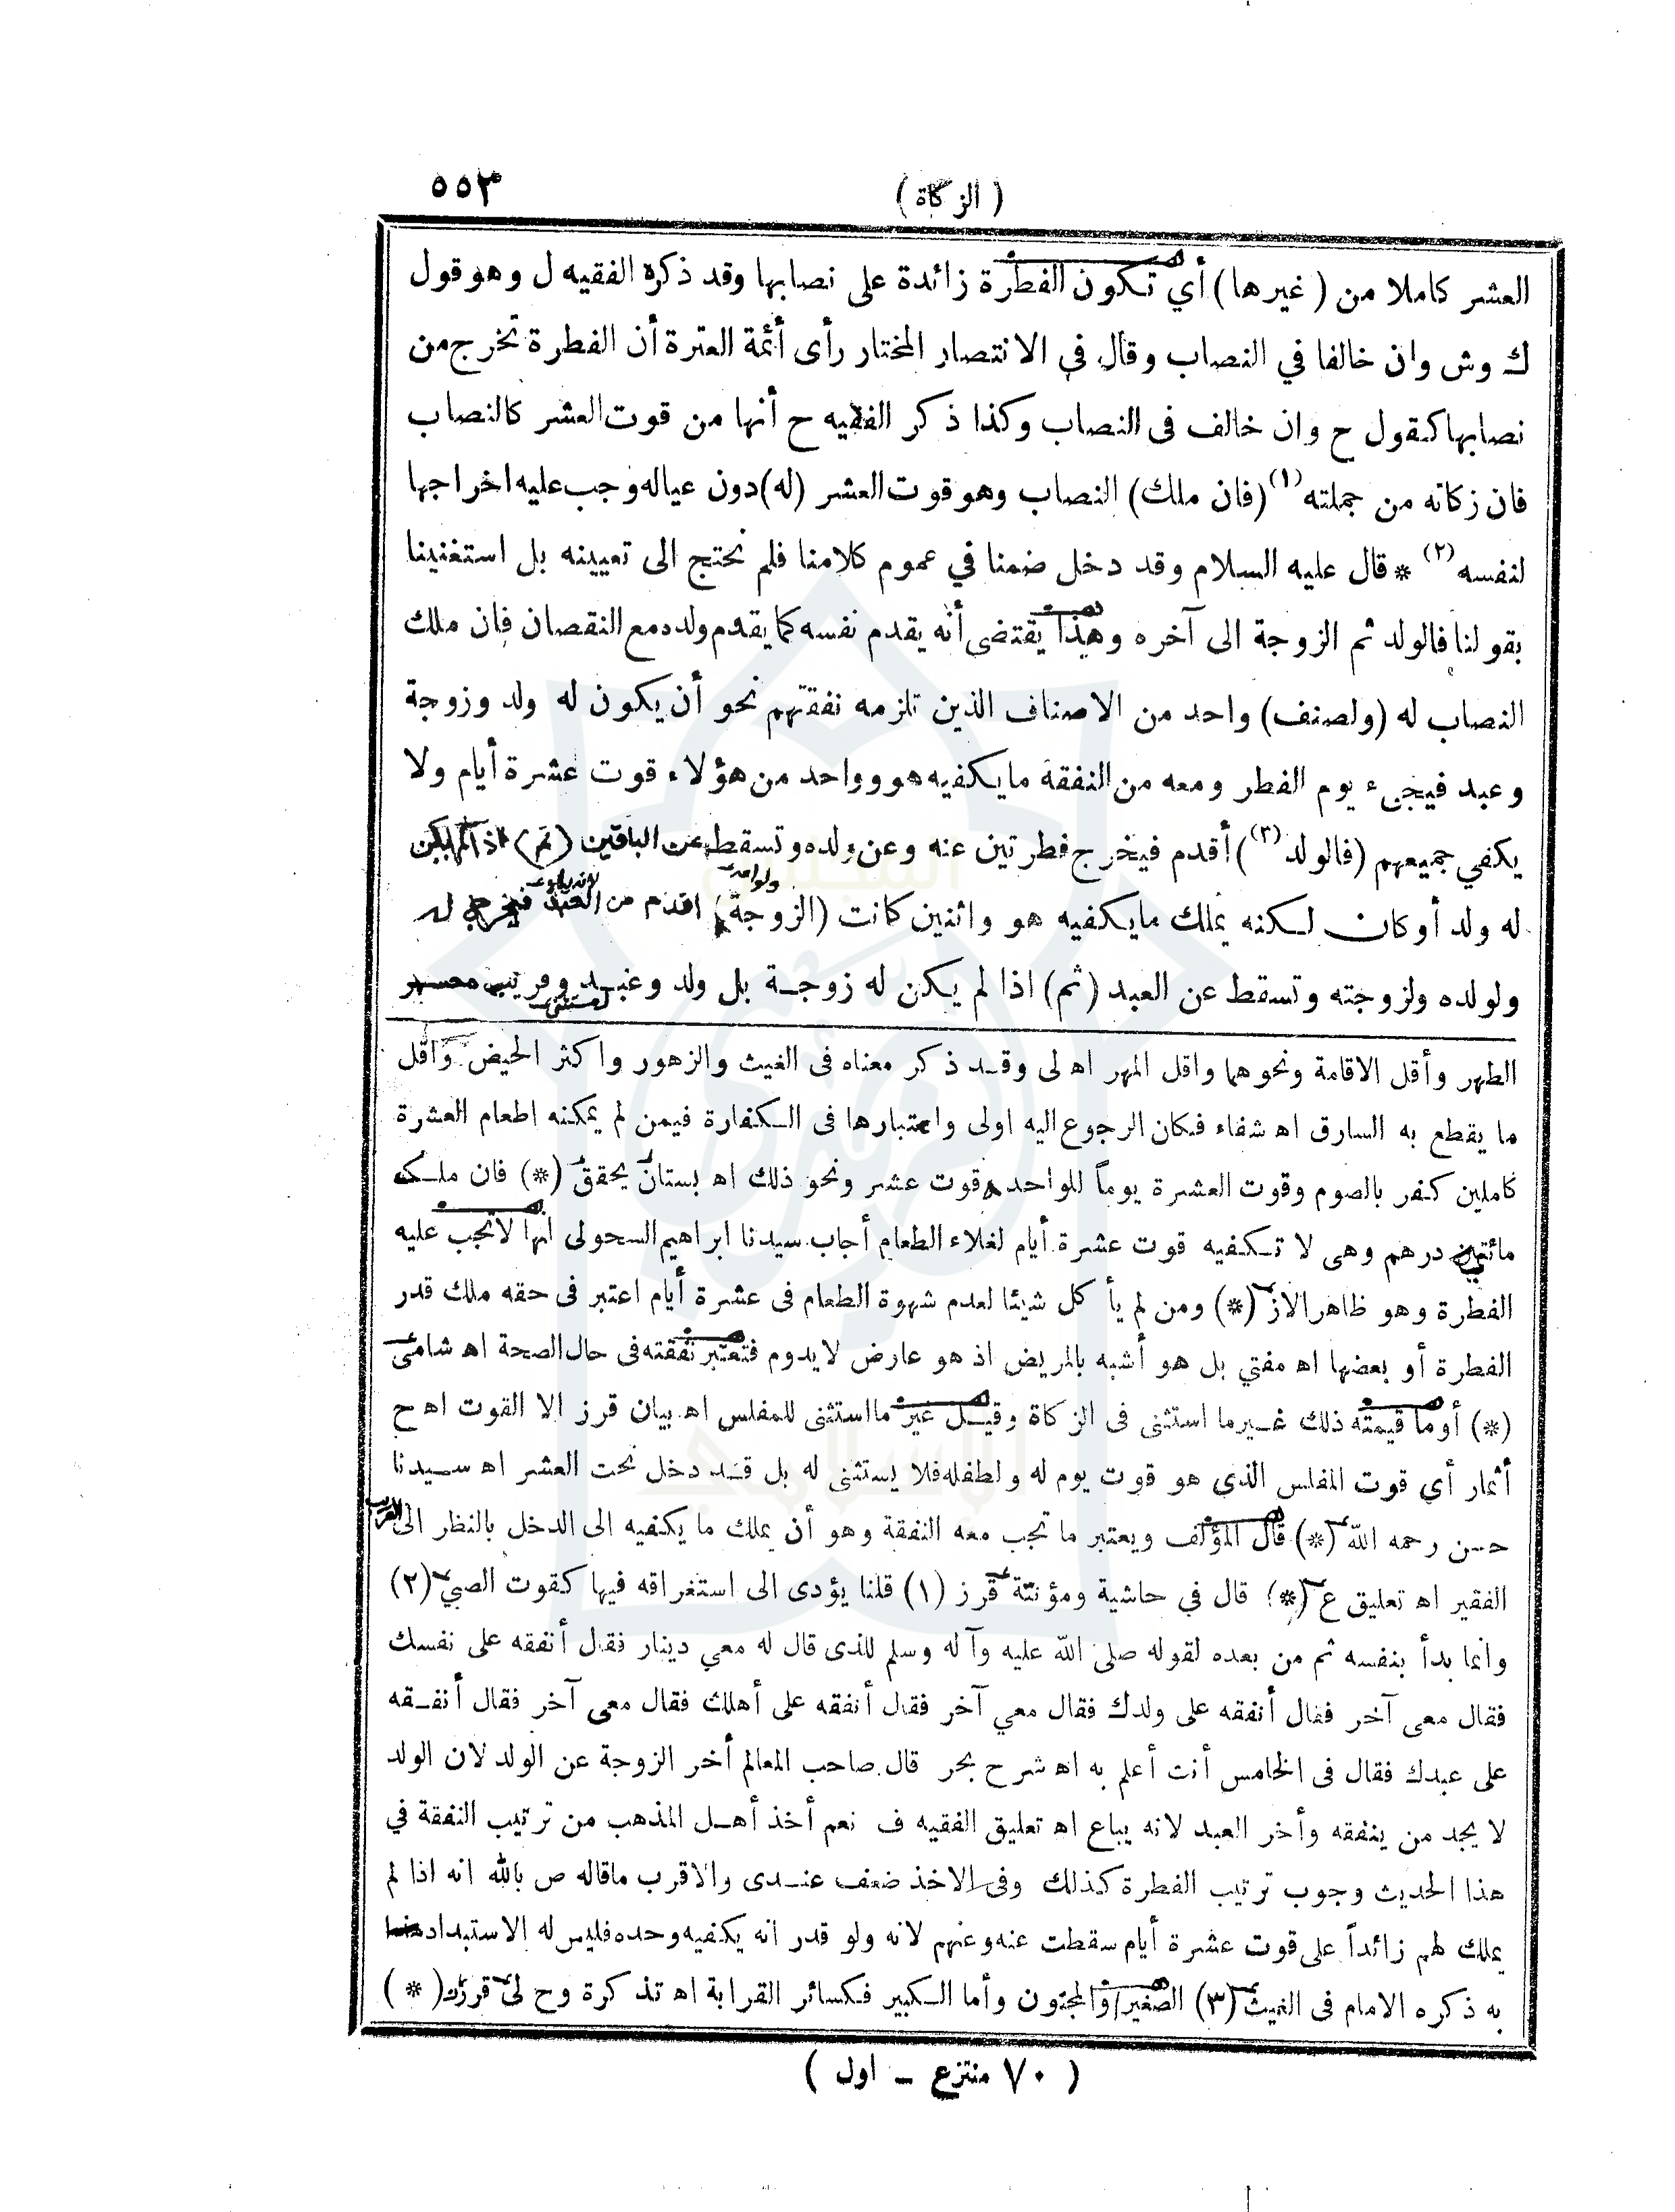 ( الزكاة )
٥٥٣
العشر كاملا من ( غيرها ) أي تكون الفطرة زائدة على نصابها وقد ذكره الفقيه ل وهو قول
ك وش وان خالفا في النصاب وقال في الانتصار المختار رأى أئمة العترة أن الفطرة تخرج من
نصابها كقول ح وان خالف فى النصاب وكذا ذكر الفقيه ح أنها من قوت العشر كالنصاب
فان زكاته من جملته (١) (فان ملك) النصاب وهو قوت العشر (له) دون عياله وجب عليه اخراجها
لنفسه (٢) * قال عليه السلام وقد دخل ضمنا في عموم كلامنا فلم نحتج الى تعيينه بل استغنينا
بقولنا فالولد ثم الزوجة الى آخره وهذا يقتضى أنه يقدم نفسه كما يقدم ولده مع النقصان فان ملك
النصاب له (ولصنف) واحد من الاصناف الذين تلزمه نفقتهم نحو أن يكون له ولد وزوجة
وعبد فيجىء يوم الفطر ومعه من النفقة ما يكفيه هو وواحد من هؤلاء قوت عشرة أيام ولا
يكفي جميعهم (فالولد (٣) ) أقدم فيخرج فطرتين عنه وعن ولده وتسقط عن الباقين (ثم) اذا لم يكن
له ولد أو كان لكنه يملك ما يكفيه هو واثنين كانت (الزوجة) اقدم من العبد فيخرج له
ولولده ولزوجته وتسقط عن العبد (ثم) اذا لم يكن له زوجة بل ولد وعبد وقريب معسر
الطهر وأقل الاقامة ونحوهما واقل المهر اه لى وقد ذكر معناه فى الغيث والزهور واكثر الحيض وأقل
ما يقطع به السارق اه شفاء فكان الرجوع اليه اولى واعتبارها فى الكفارة فيمن لم يمكنه اطعام العشرة
كاملين كفر بالصوم وقوت العشرة يوماً للواحد قوت عشر ونحو ذلك اه بستان يحقق (*) فان ملك
مائتين درهم وهى لا تكفيه قوت عشرة أيام لغلاء الطعام أجاب سيدنا ابراهيم السحولى انها لا تجب عليه
الفطرة وهو ظاهر الاز (*) ومن لم يأكل شيئا لعدم شهوة الطعام فى عشرة أيام اعتبر فى حقه ملك قدر
الفطرة أو بعضها اه مفتي بل هو أشبه بالمريض اذ هو عارض لا يدوم فتعتبر نفقته فى حال الصحة اه شامى
(*) أو ما قيمته ذلك غير ما استثنى فى الزكاة وقيل غير ما استثنى للمفلس اه بيان قرز الا القوت اه ح
أثمار أي قوت المفلس الذى هو قوت يوم له ولطفله فلا يستثنى له بل قد دخل تحت العشر اه سيدنا
حسن رحمه الله (*) قال المؤلف ويعتبر ما تجب معه النفقة وهو أن يملك ما يكفيه الى الدخل بالنظر الى
الفقير اه تعليق ع (*) قال في حاشية ومؤنتة قرز (١) قلنا يؤدى الى استغراقه فيها كقوت الصبي (٢)
وانما بدأ بنفسه ثم من بعده لقوله صلى الله عليه وآله وسلم للذى قال له معي دينار فقال أنفقه على نفسك
فقال معى آخر فقال أنفقه على ولدك فقال معي آخر فقال أنفقه على أهلك فقال معى آخر فقال أنفقه
على عبدك فقال فى الخامس أنت أعلم به اه شرح بحر قال صاحب المعالم أخر الزوجة عن الولد لان الولد
لا يجد من ينفقه وأخر العبد لانه يباع اه تعليق الفقيه ف نعم أخذ أهل المذهب من ترتيب النفقة في
هذا الحديث وجوب ترتيب الفطرة كذلك وفى الاخذ ضعف عندى والاقرب ما قاله ص بالله انه اذا لم
يملك لهم زائداً على قوت عشرة أيام سقطت عنه وعنهم لانه ولو قدر انه يكفيه وحده فليس له الاستبداد
به ذكره الامام فى الغيث (٣) الصغير أو المجنون وأما الكبير فكسائر القرابة اه تذكرة وح لى قرز (*)
( ٧٠ منتزع – اول )